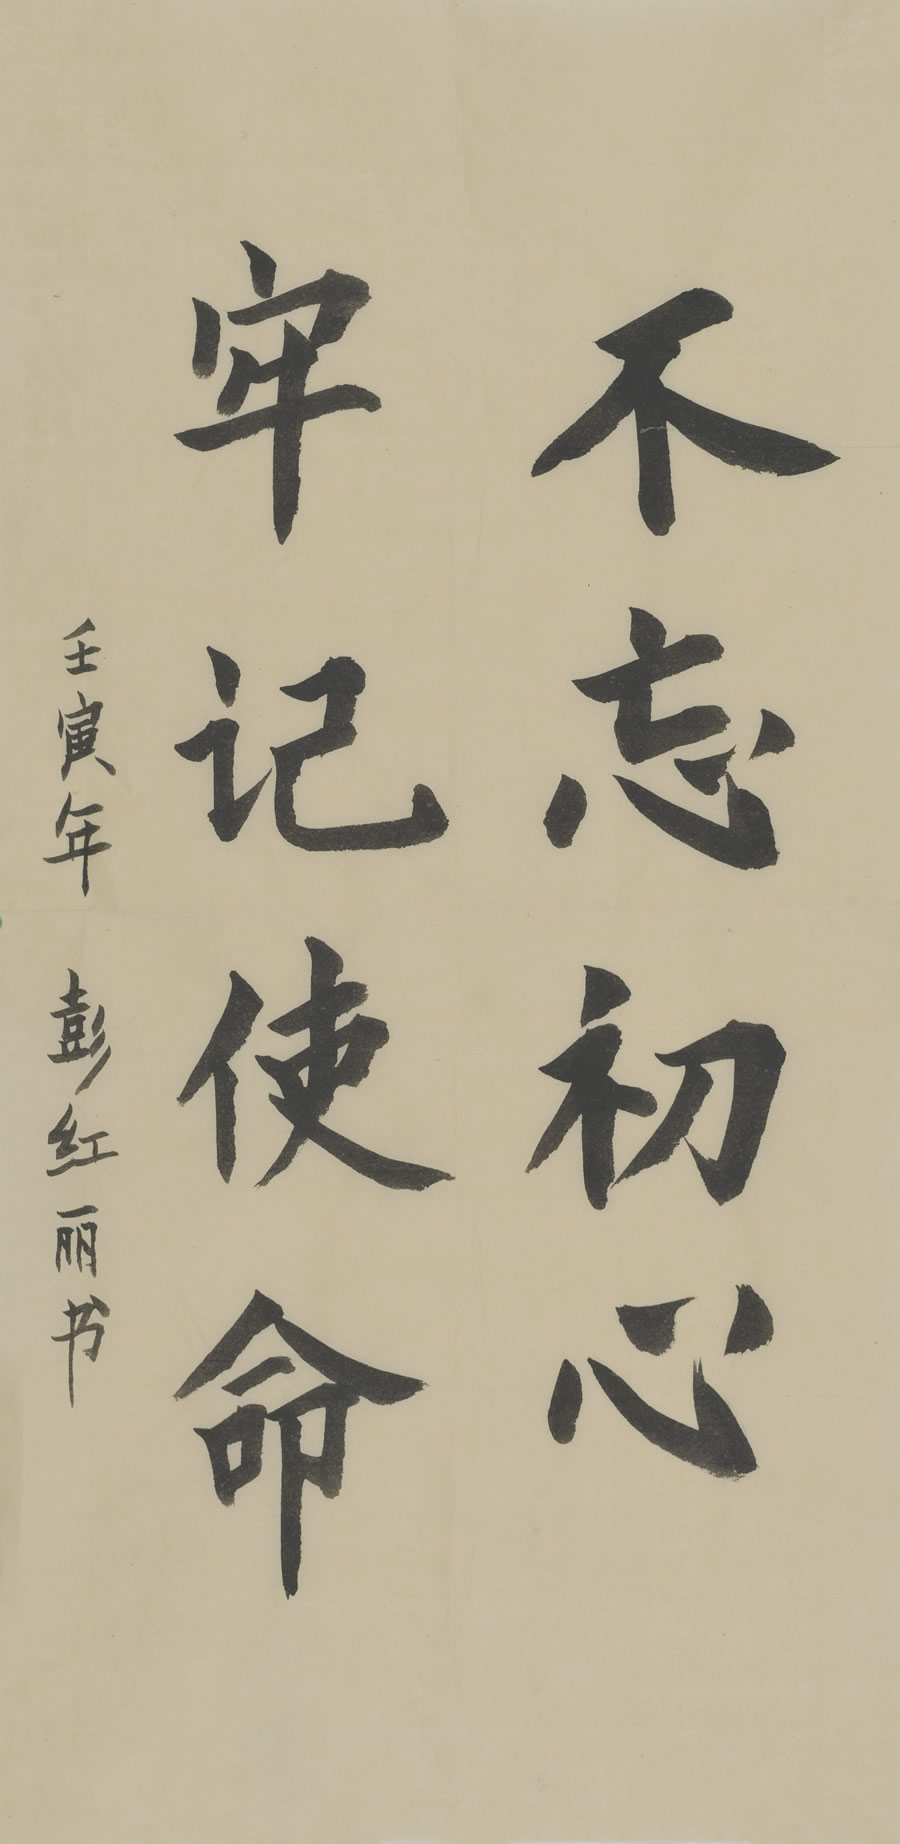 不忘初心
牢记使命
壬寅年 彭红丽书